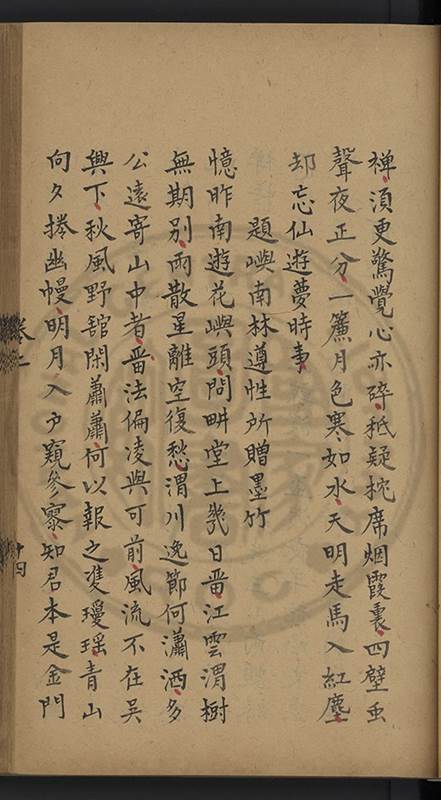 禅須更驚覺心亦碎秪疑枕席烟霞裏四壁虫
聲夜正分一簾月色寒如水天明走馬入紅塵
却忘仙遊夢時事
題嶼南林遵性所贈墨竹
憶昨南遊花嶼頭問畊堂上幾日畱江雲渭樹
無期别雨散星離空復愁渭川逸節何瀟洒多
公遠寄山中者畱法偏凌與可前風流不在吳
興下秋風野舘閑蕭蕭何以報之雙瓊瑶青山
向夕捲幽幔明月入户窺參寥知君本是金門
卷上
十四